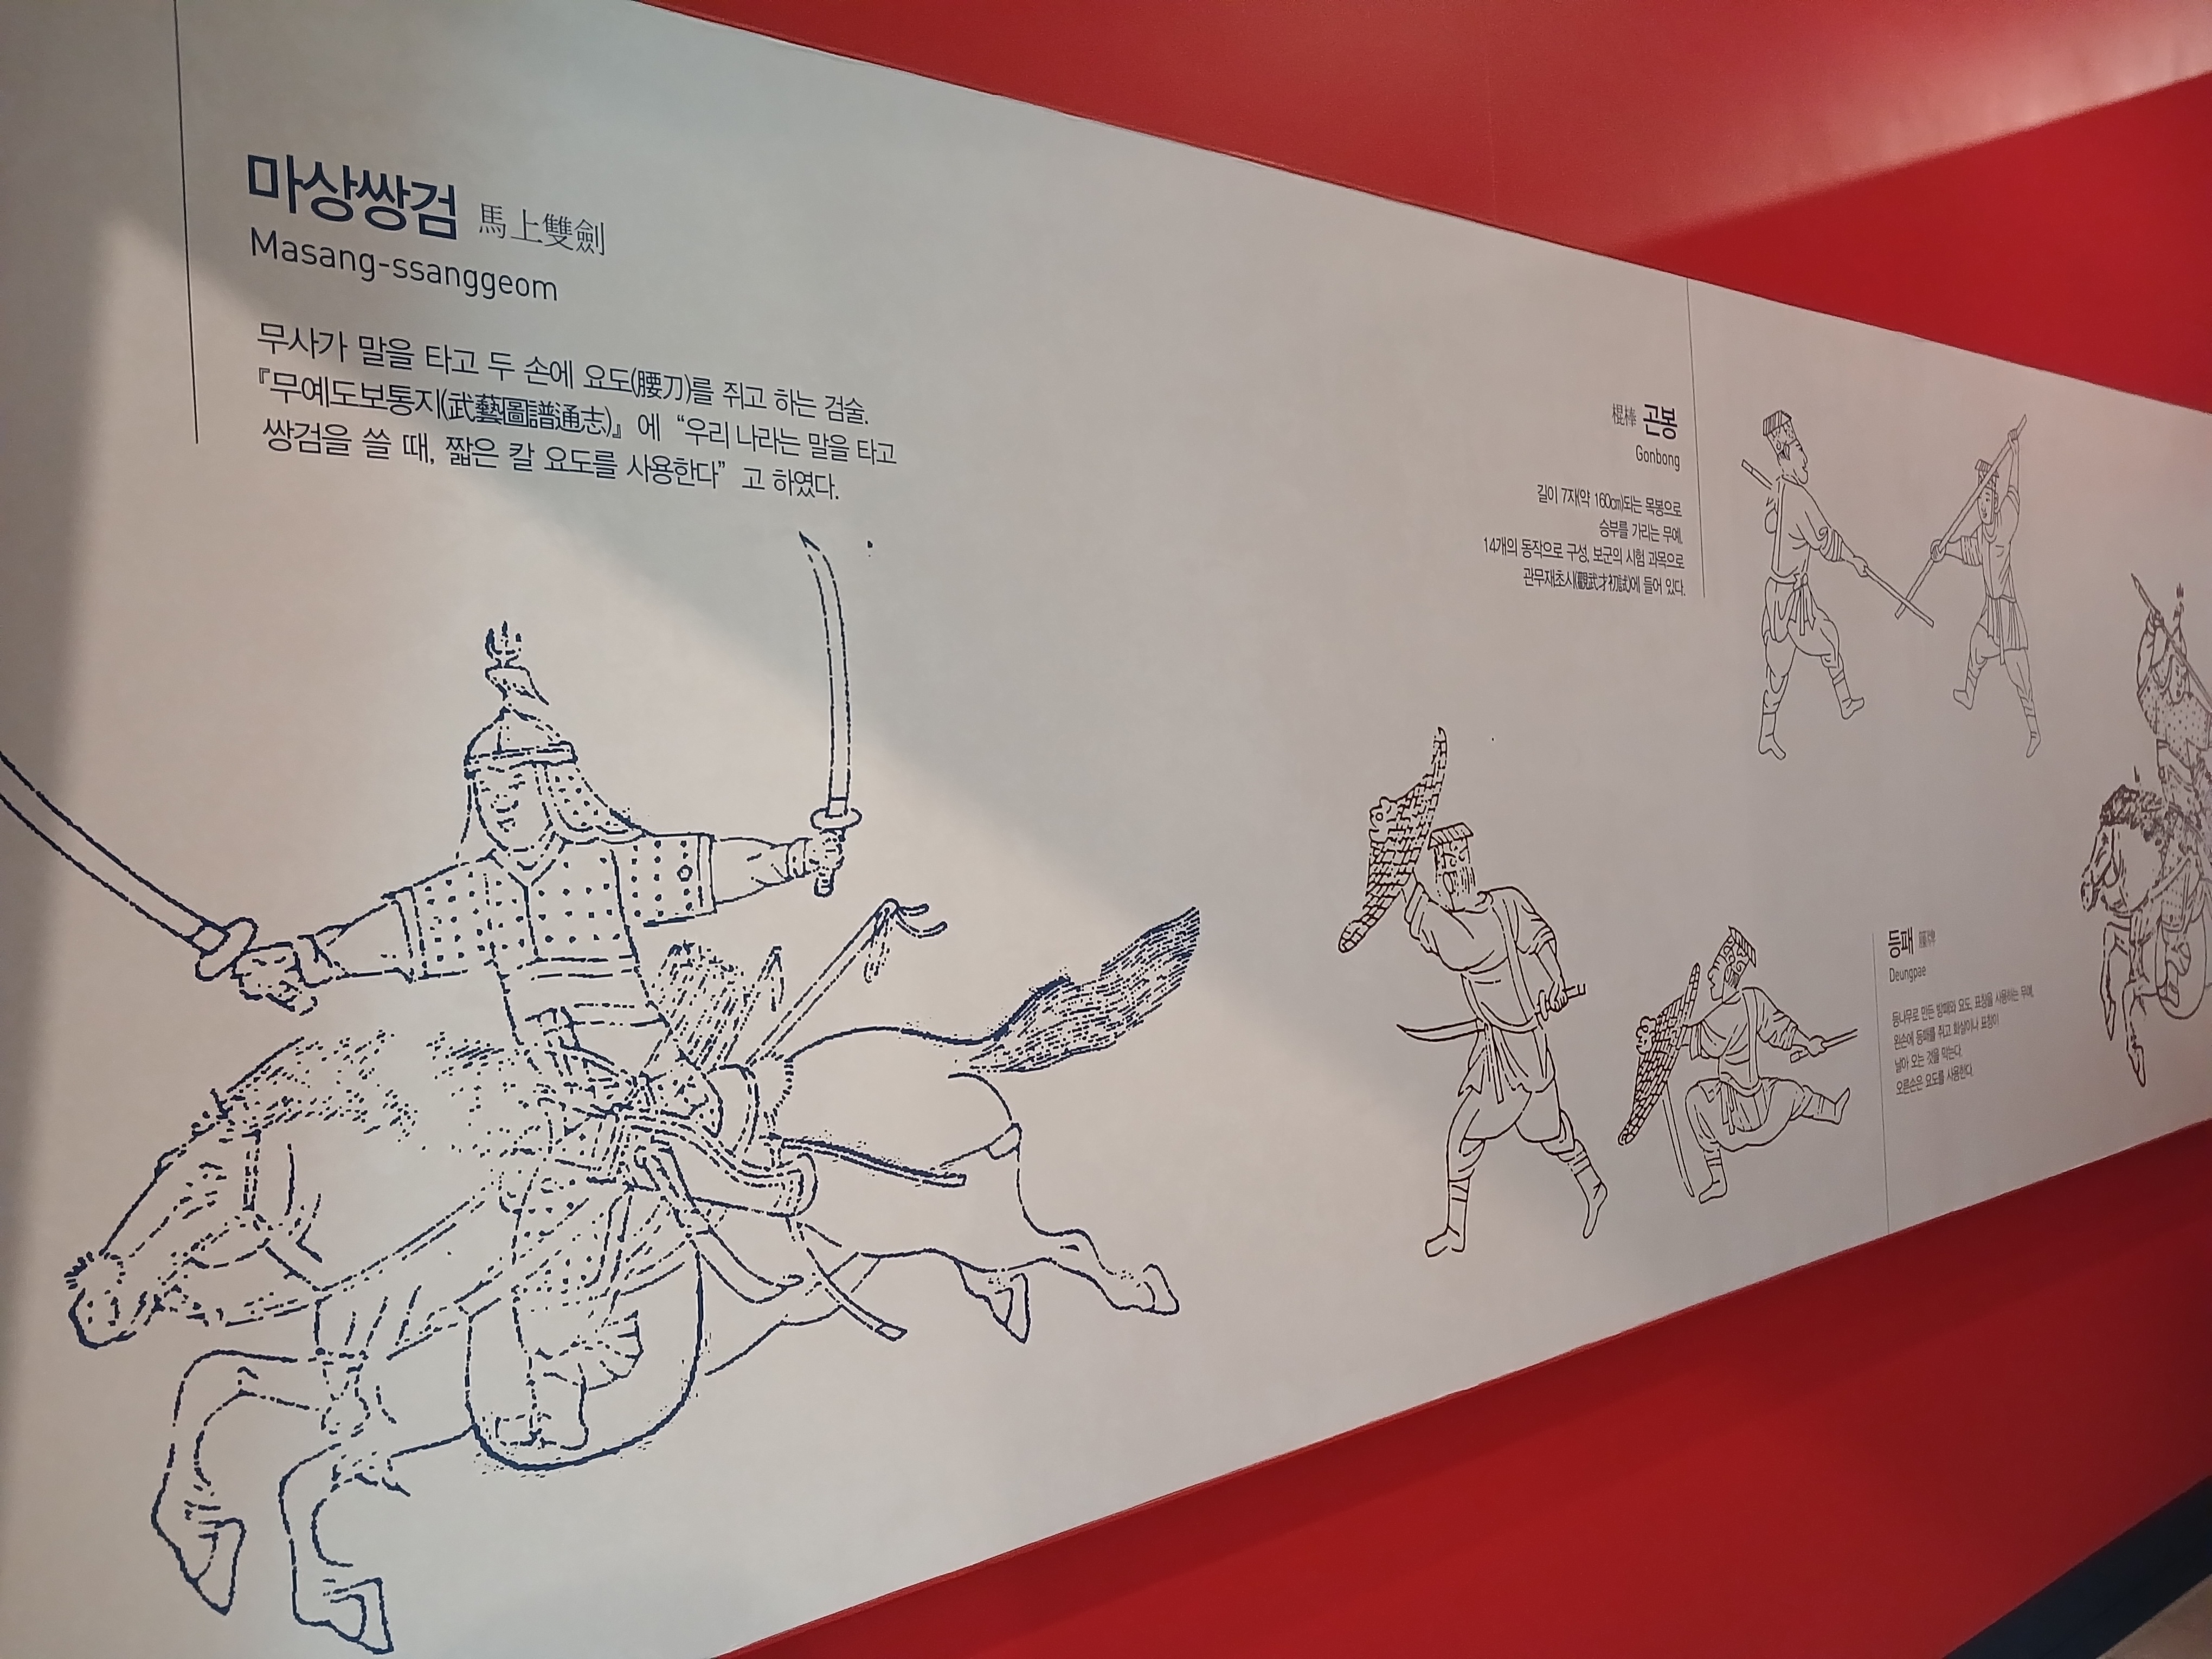 마상쌍검 馬上雙劍
Masang-ssanggeom
무사가 말을 타고 두 손에 요도(腰刀)를 쥐고 하는 검술.
『무예도보통지(武藝圖譜通志)』에 “우리 나라는 말을 타고
쌍검을 쓸 때, 짧은 칼 요도를 사용한다” 고 하였다.
棍棒 곤봉
Gonbong
길이 7자(약 160㎝)되는 목봉으로
승부를 가리는 무예.
14개의 동작으로 구성, 보군의 시험 과목으로
관무재초시(觀武才初試)에 들어 있다.
등패
Deungpae
등나무로 만든 방패와 요도, 표창을 사용하는 무예.
왼손에 등패를 쥐고 화살이나 표창이
날아 오는 것을 막는다.
오른손은 요도를 사용한다.